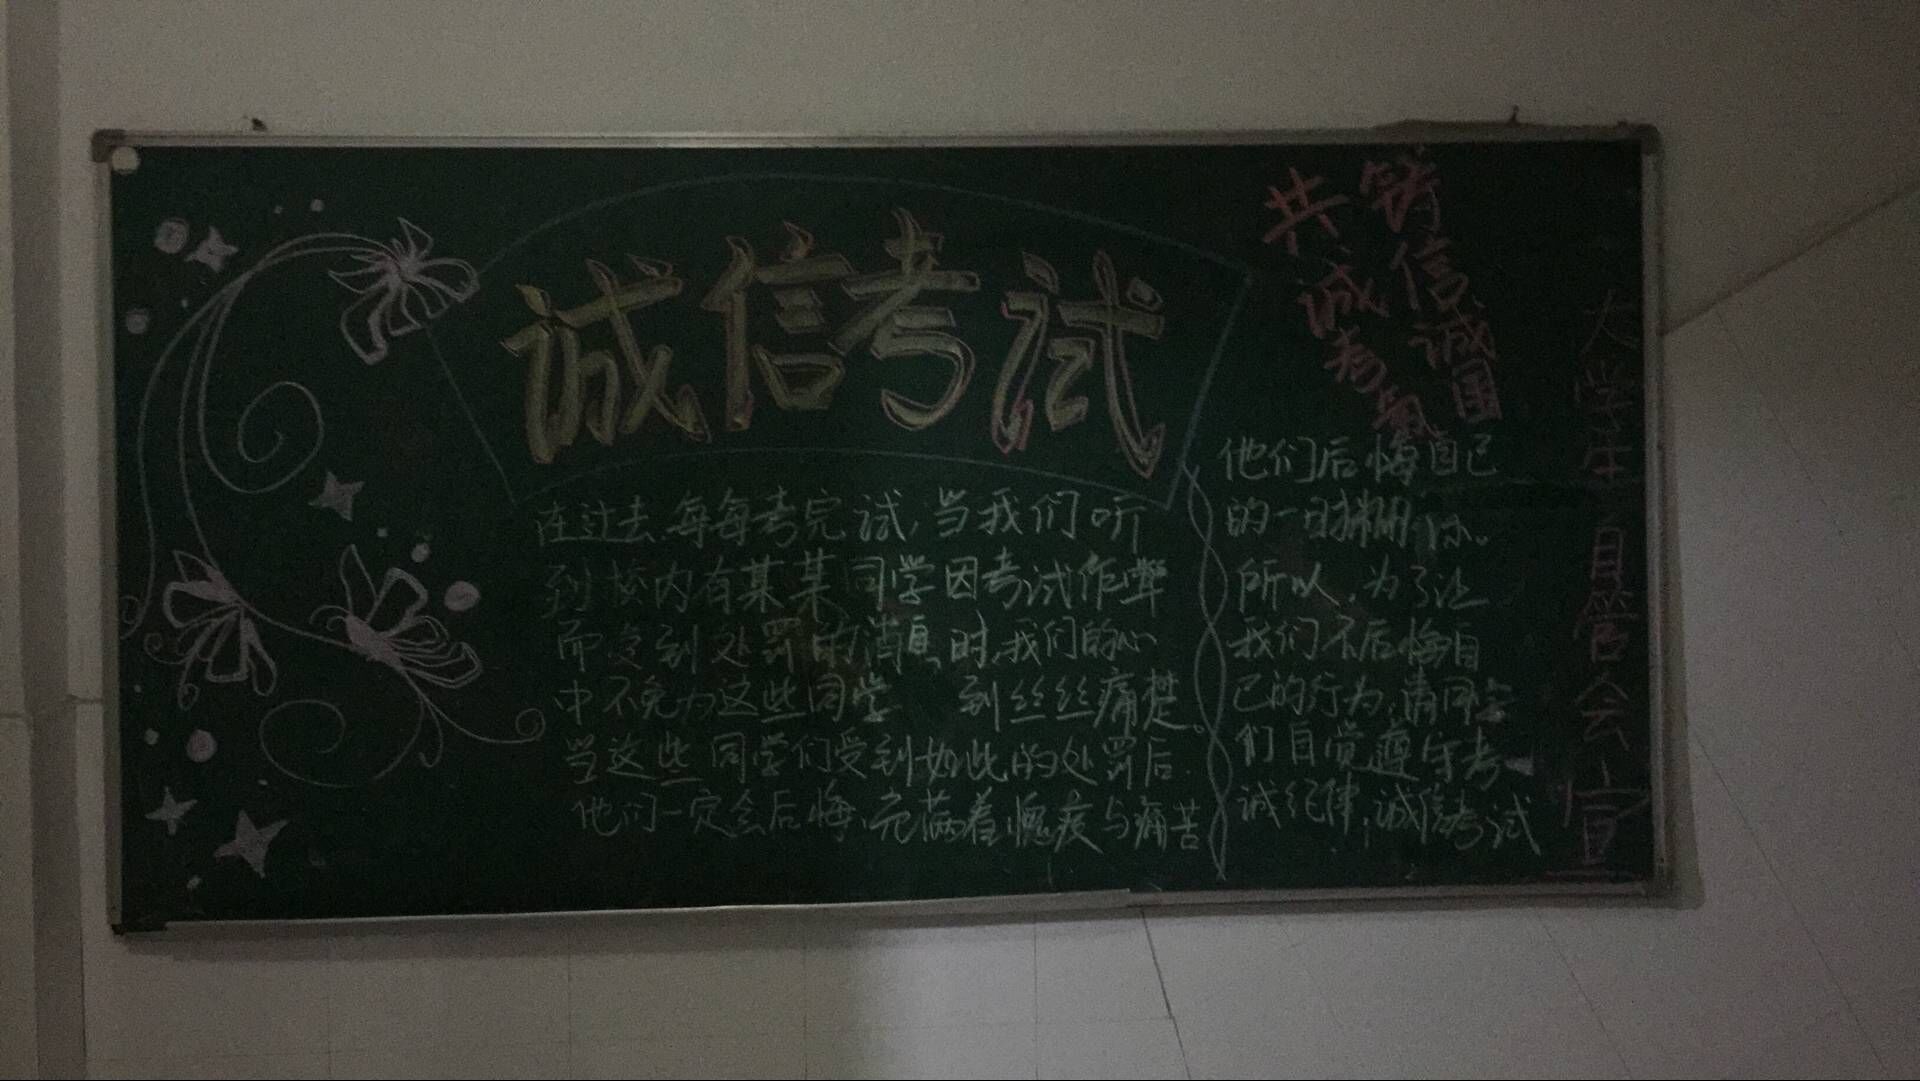 诚信考试
共
诚考
铸信诚国
在过去,每每考完试,当我们听
到校内有某某同学因考试作弊
而受到处罚的消息时,我们的心
中不免为这些同学 到丝丝痛楚。
当这些同学们受到如此的处罚后
他们一定会后悔,充满着愧疚与痛苦
他们后悔自己
的一时糊
所以,为了让
我们不后悔自
己的行为,请同学
们自觉遵守考
诚纪律,诚信考试
大学生自管会宣